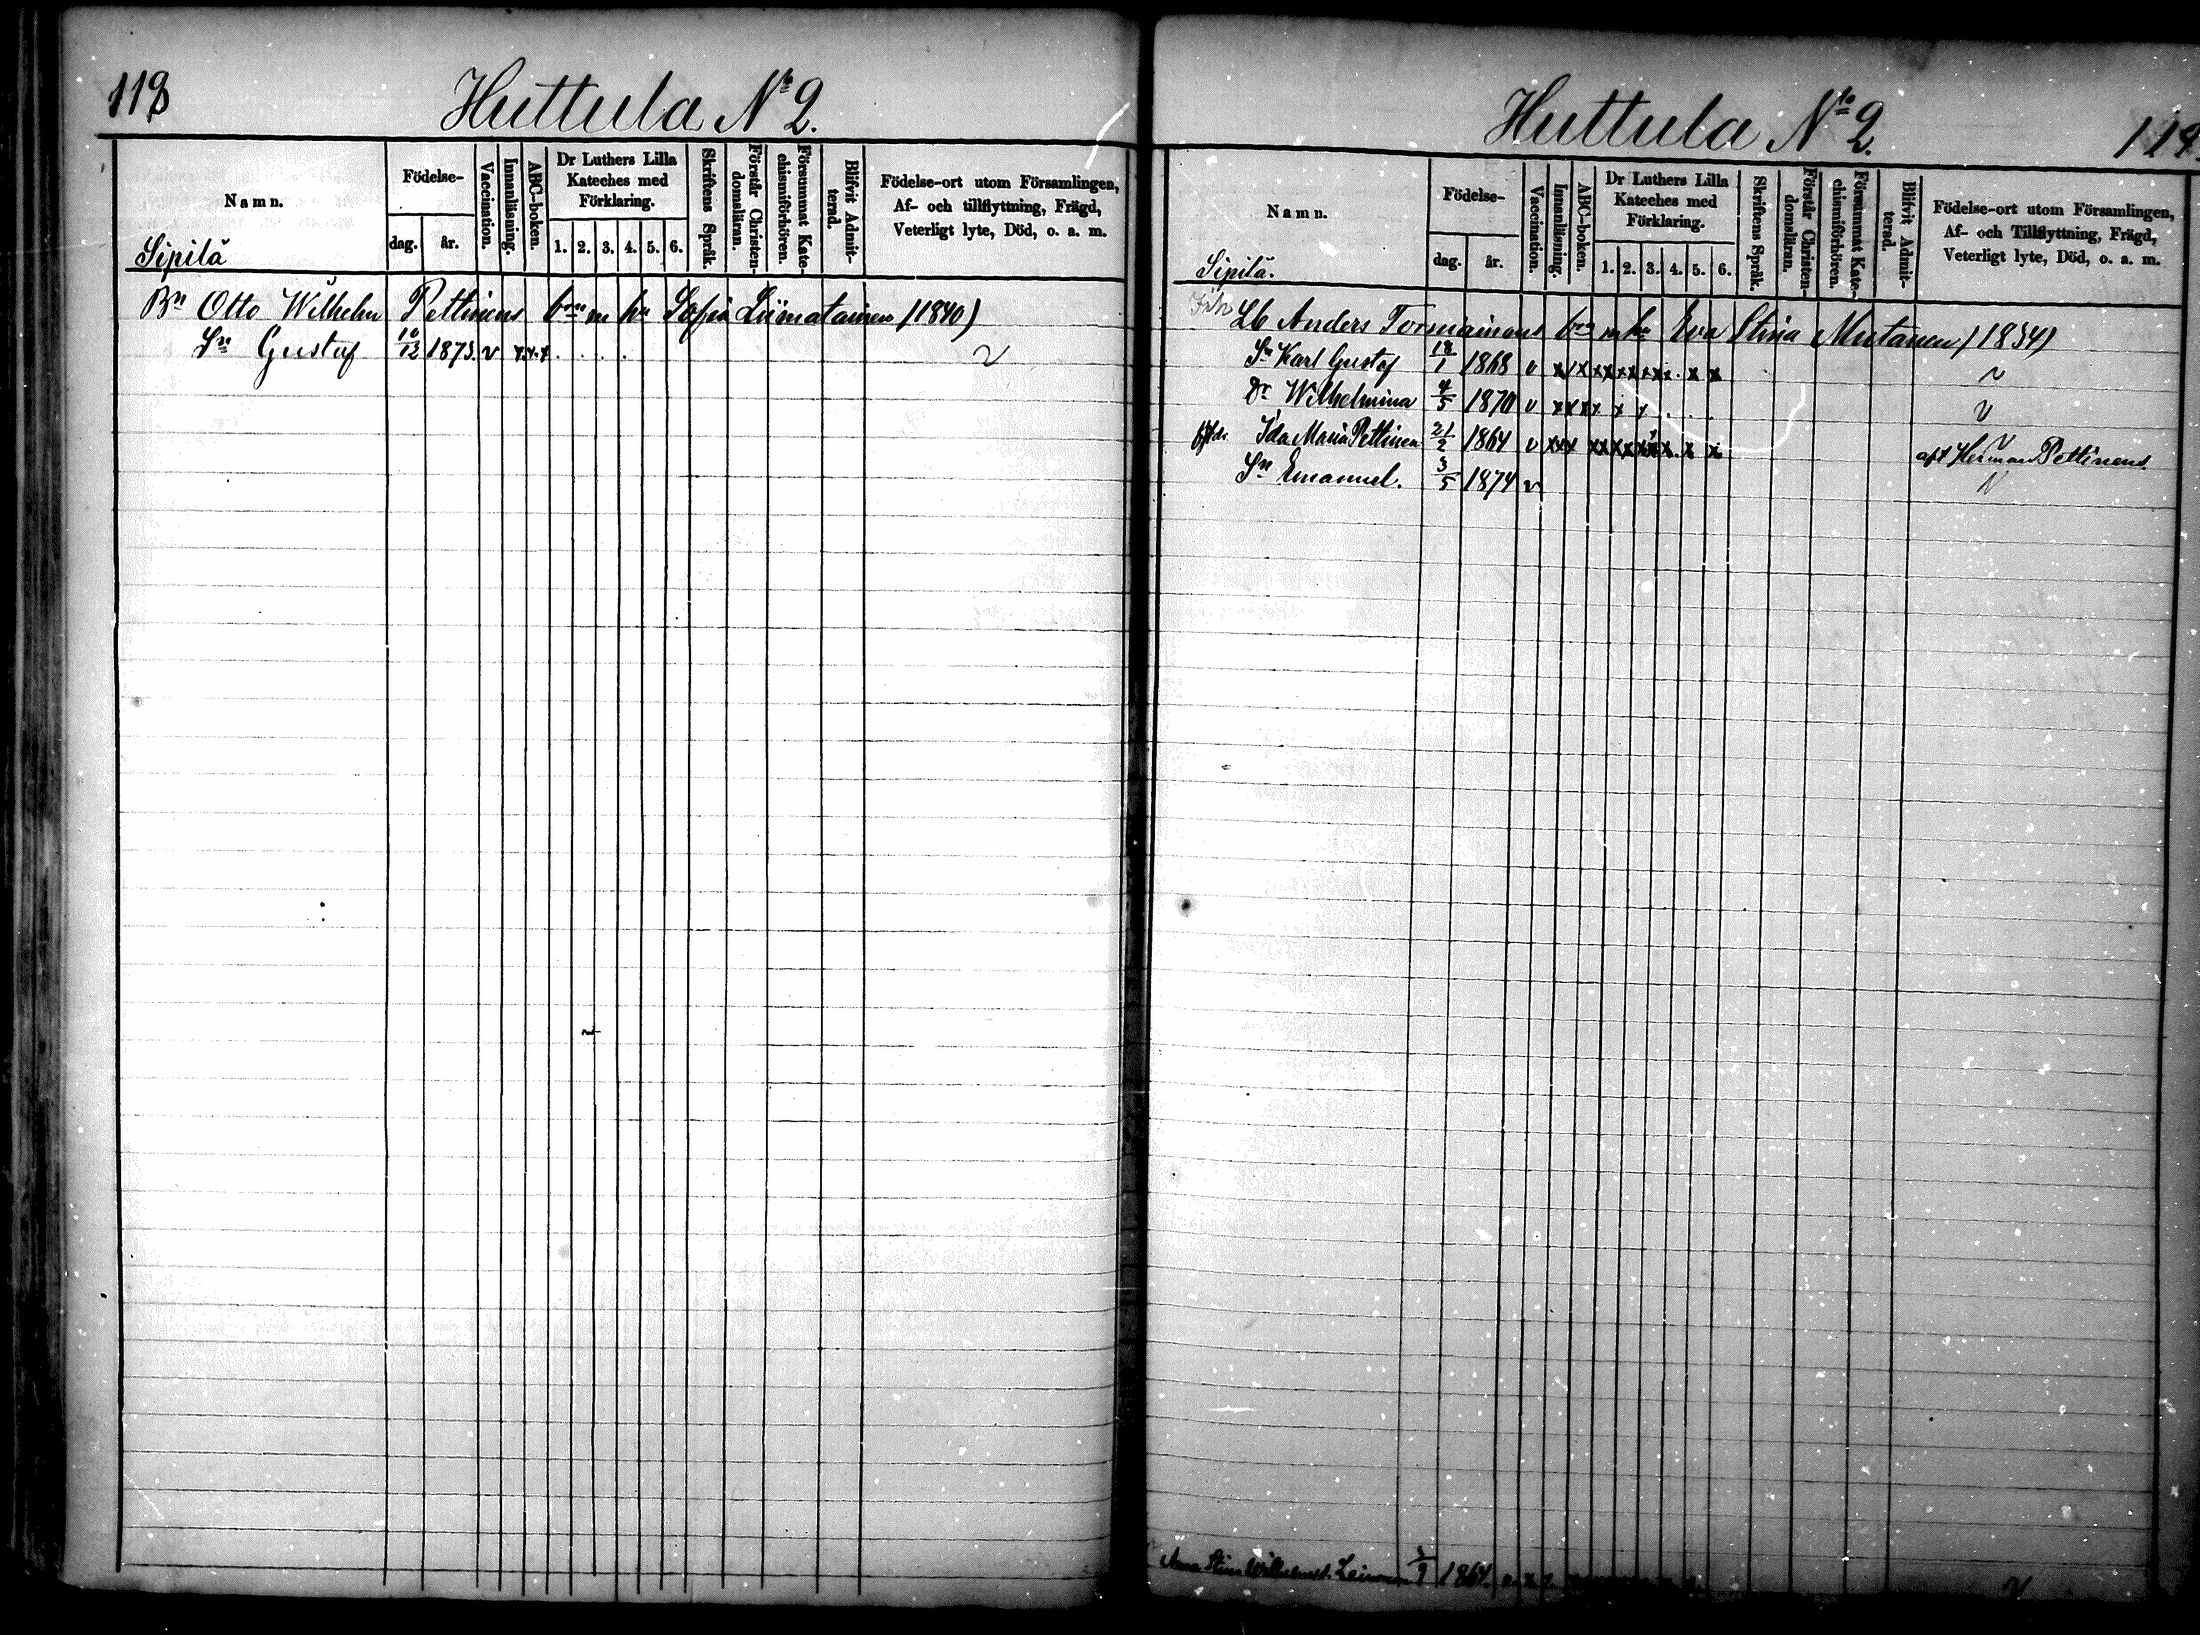 118
Huttula No 2.
Namn.
Födelse-
dag. år.
Vaccination.
Innanläsning.
ABC-boken.
Dr Luthers Lilla Kateches med Förklaring.
1. 2. 3. 4. 5. 6.
Skriftens Språk.
Förstår Christen-domsläran.
Försummat Kate-chismiförhören.
Blifvit Admit-terad.
Födelse-ort utom Församlingen,
Af- och tillflyttning, Frägd,
Veterligt lyte, Död, o. a. m.
Sipilä
Bn Otto Wilhelm Pettinens brn m hu Sofia Liimatainen (1840)
Sn Gustaf 10/12 1873. v x x x . . . . v
Huttula No 2.
119.
Namn.
Födelse-
dag. år.
Vaccination.
Innanläsning.
ABC-boken.
Dr Luthers Lilla Kateches med Förklaring.
1. 2. 3. 4. 5. 6.
Skriftens Språk.
Förstår Christen-domsläran.
Försummat Kate-chismiförhören.
Blifvit Admit-terad.
Födelse-ort utom Församlingen,
Af- och Tillflyttning, Frägd,
Veterligt lyte, Död, o. a. m.
Sipilä.
Lb Anders Tormainens brn m hu Eva Stina Mutanen (1834)
Sn Karl Gustaf 18/1 1868 v v
Dr Wilhelmina 4/5 1870 v v
Ida Maria Pettinen 21/2 1864 v v Herman Pettinens.
Sn Emanuel. 3/5 1874 v v
Anna Stina Wilhelmsd. 1864. v